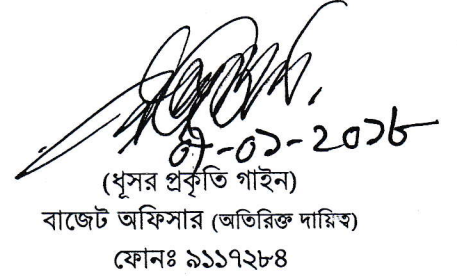 ০৭-০১-২০১৮
(ধূসর প্রকৃতি গাইন)
বাজেট অফিসার (অতিরিক্ত দায়িত্ব)
ফোনঃ ৯১১৭২৮৪